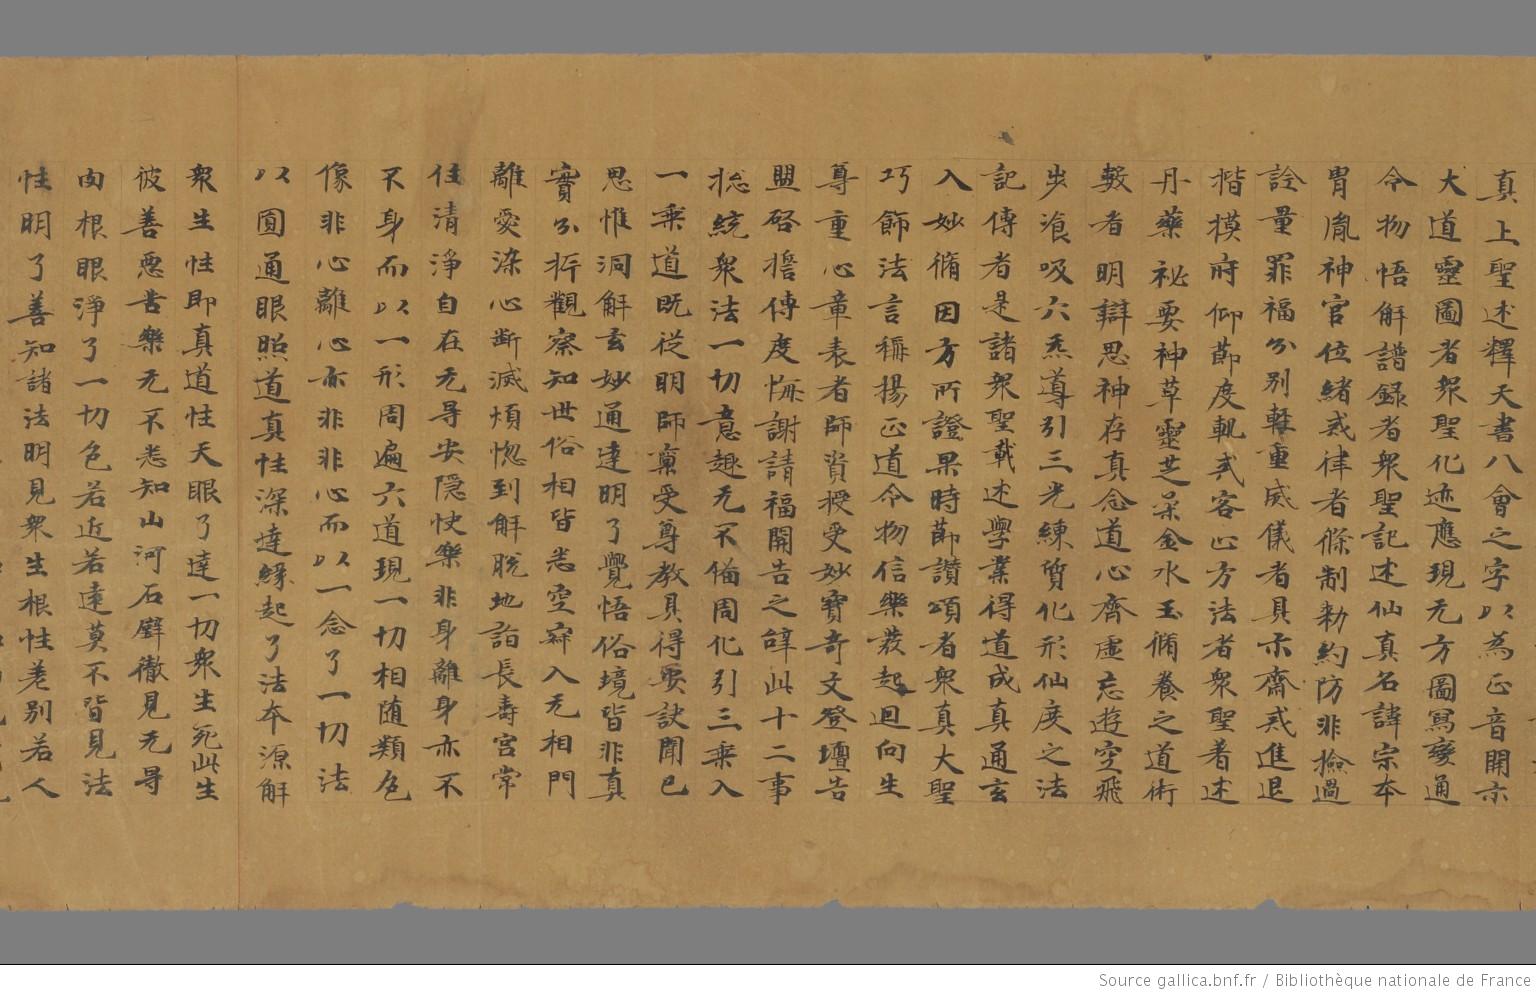 真上聖述釋天書八會之字以為正音開示
大道靈圖者衆聖化迹應現无方圖寫變通
令物悟解譜録者衆聖記述仙真名諱宗本
胄胤神官位緒戒律者條制勑約防非撿過
詮量罪福分別輕重威儀者具示齋戒進退
揩摸府仰節度軌式容止方法者衆聖著述
丹藥祕要神草靈芝柔金水玉脩養之道術
數者明辯思神存真念道心齊虛忘遊空飛
步飡吸六炁導引三光練質化形仙度之法
記傳者是諸衆聖載述學業得道成真通玄
入妙脩因方所證果時節讚頌者衆真大聖
巧飾法言稱揚正道令物信樂發起迴向生
尊重心章表者師資授受妙寶奇文登壇告
盟啓擔傳度悔謝請福開告之辝此十二事
捴統衆法一切意趣无不備周化引三乘入
一乘道既從明師稟受尊教具得要訣聞已
思惟洞解玄妙通達明了覺悟俗境皆非真
實分㭊觀察知世俗相皆悉空寂入无相門
離愛染心斷滅煩惚到解脫地詣長壽宮常
住清淨自在无㝵安隠快樂非身離身亦不
不身而以一形周遍六道現一切相随類色
像非心離心亦非非心而以一念了一切法
以圓通眼照道真性深達緣起了法本源解
衆生性即真道性天眼了達一切衆生死此生
彼善惡苦樂无不悉知山河石壁徹見无㝵
肉根眼淨了一切色若近若遠莫不皆見法
性明了善知諸法明見衆生根性差別若人